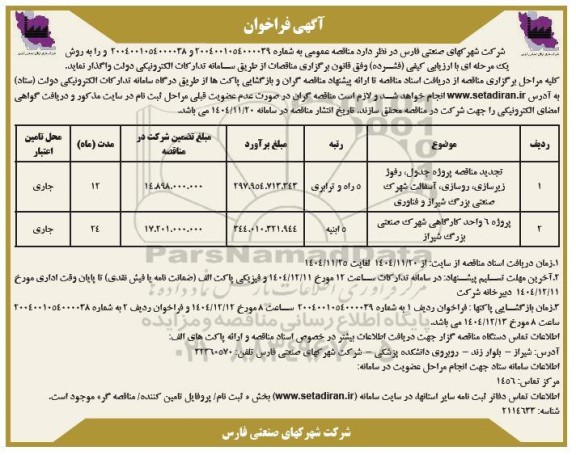 آگهی فراخوان
شرکت شهرکهای صنعتی فارس در نظر دارد مناقصه عمومی به شماره ۲۰۰۴۰۰۱۰۵۴۰۰۰۰۳۹ و ۲۰۰۴۰۰۱۰۵۴۰۰۰۰۳۸ و را به روش
یک مرحله ای با ارزیابی کیفی (فشرده) وفق قانون برگزاری مناقصات از طریق سامانه تدارکات الکترونیکی دولت واگذار نماید.
کلیه مراحل برگزاری مناقصه از دریافت اسناد مناقصه تا ارائه پیشنهاد مناقصه گران و بازگشایی پاکت ها از طریق درگاه سامانه تدارکات الکترونیکی دولت (ستاد)
به آدرس www.setadiran.ir انجام خواهد شد و لازم است مناقصه گران در صورت عدم عضویت قبلی مراحل ثبت نام در سایت مذکور و دریافت گواهی
امضای الکترونیکی را جهت شرکت در مناقصه محقق سازند. تاریخ انتشار مناقصه در سامانه ۱۴۰۴/۱۱/۲۰ می باشد.
ردیف موضوع رتبه مبلغ برآورد مبلغ تضمین شرکت در مناقصه مدت (ماه) محل تامین اعتبار
۱ تجدید مناقصه پروژه جدول، رفوژ زیرسازی، روسازی، آسفالت شهرک صنعتی بزرگ شیراز و فناوری ۵ راه و ترابری ۲۹۷.۹۵۴.۷۱۳.۳۴۳ ۱۴.۸۹۸.۰۰۰.۰۰۰ ۱۲ جاری
۲ پروژه ۶ واحد کارگاهی شهرک صنعتی بزرگ شیراز ۵ ابنیه ۳۴۴.۰۱۰.۳۲۱.۹۴۴ ۱۷.۲۰۱.۰۰۰.۰۰۰ ۲۴ جاری
۱.زمان دریافت اسناد مناقصه از سایت: از ۱۴۰۴/۱۱/۲۰ لغایت ۱۴۰۴/۱۱/۲۵
۲.آخرین مهلت تسلیم پیشنهاد: در سامانه تدارکات ساعت ۱۲ مورخ ۱۴۰۴/۱۲/۱۱ و فیزیکی پاکت الف (ضمانت نامه یا فیش نقدی) تا پایان وقت اداری مورخ
۱۴۰۴/۱۲/۱۱ دبیرخانه شرکت
۳.زمان بازگشایی پاکتها : فراخوان ردیف ۱ به شماره ۲۰۰۴۰۰۱۰۵۴۰۰۰۰۳۹ ساعت ۸ مورخ ۱۴۰۴/۱۲/۱۲ و فراخوان ردیف ۲ به شماره ۲۰۰۴۰۰۱۰۵۴۰۰۰۰۳۸
ساعت ۸ مورخ ۱۴۰۴/۱۲/۱۳ می باشد.
اطلاعات تماس دستگاه مناقصه گزار جهت دریافت اطلاعات بیشتر در خصوص اسناد مناقصه و ارائه پاکت های الف:
آدرس: شیراز – بلوار زند – روبروی دانشکده پزشکی – شرکت شهرکهای صنعتی فارس تلفن: ۳۲۳۶۰۵۷۰
اطلاعات سامانه ستاد جهت انجام مراحل عضویت در سامانه:
مرکز تماس: ۱۴۵۶
اطلاعات تماس دفاتر ثبت نامه سایر استانها، در سایت سامانه (www.setadiran.ir) بخش « ثبت نام/ پروفایل تامین کننده/ مناقصه گر» موجود است.
شناسه: ۲۱۱۴۶۳۳
شرکت شهرکهای صنعتی فارس
ParsNamadData
پایگاه اطلاع رسانی مناقصه و مزایده